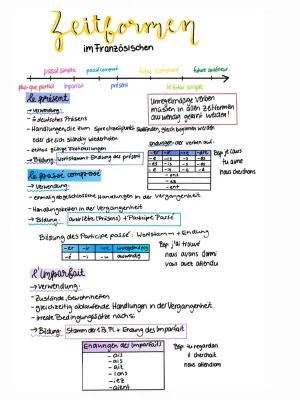 Zeitformen
im Französischen
passé simple passé composé futur composé futur antérieur
plus-que-parfait imparfait présent le futur simple
le présent
→ Verwendung:
- deutsches Präsens
- Handlungen, die zum Sprechzeitpunkt stattfinden, gleich beginnen werden
oder die sich ständig wiederholen
→ Bildung: Wortstamm + Endung des présent
Unregelmäßige Verben
müssen in allen Zeitformen
auswendig gelernt werden!
Endungen der Verben auf:
-er -ir
-e -is
-es -is
-e -it
- ons
- ez
- ent
tu aime
nous cherchons
le passé composé
→ Verwendung:
- einmalig abgeschlossene Handlungen in der Vergangenheit
- Handlungsketten in der Vergangenheit
→ Bildung: avoir/être (Präsens) + Participe Passé
Bildung des Participe passé: Wortstamm + Endung
-er -ir -re unregelmäßig
-é -i -u auswendig
Bsp: j'ai trouvé
nous avons dormi
vous avez attendu
l'imparfait
→ Verwendung:
- Zustände, Gewohnheiten
- gleichzeitig ablaufende Handlungen in der Vergangenheit
- irreale Bedingungssätze nach si
→ Bildung: Stamm der 1. Ps. Pl. + Endung des Imparfait
Endungen des Imparfait
- ais
- ais
- ait
- ions
- iez
- aient
Bsp: tu regardais
il cherchait
nous attendions